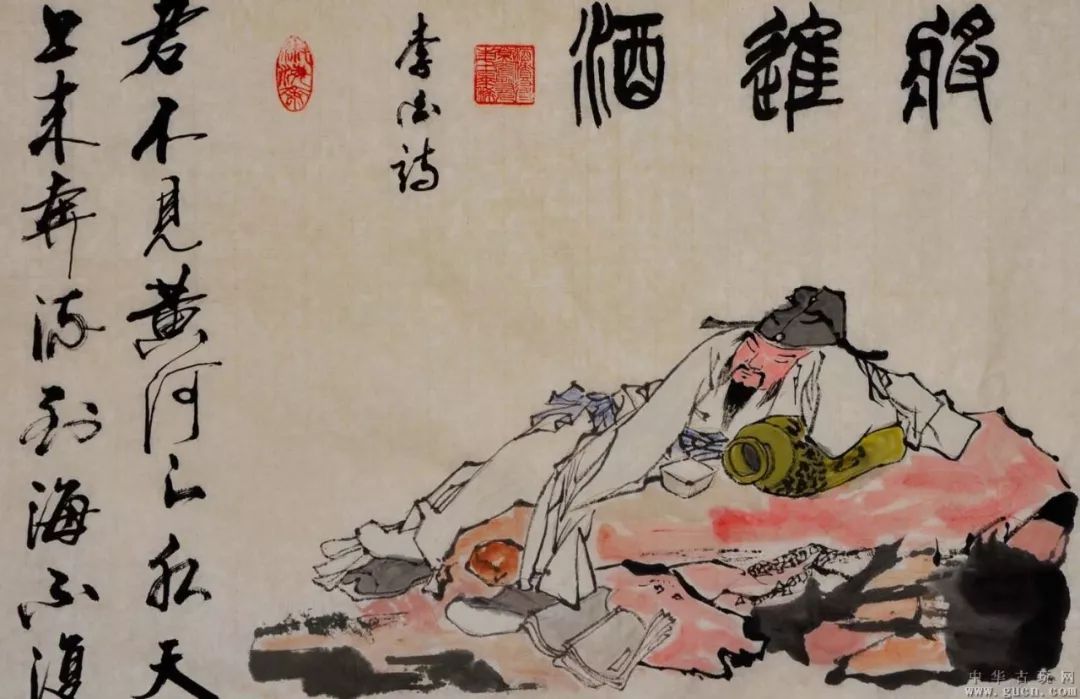 將進酒
李白詩
君不見黄河之水天
上来奔流到海不復
中华古玩网
www.gucn.com